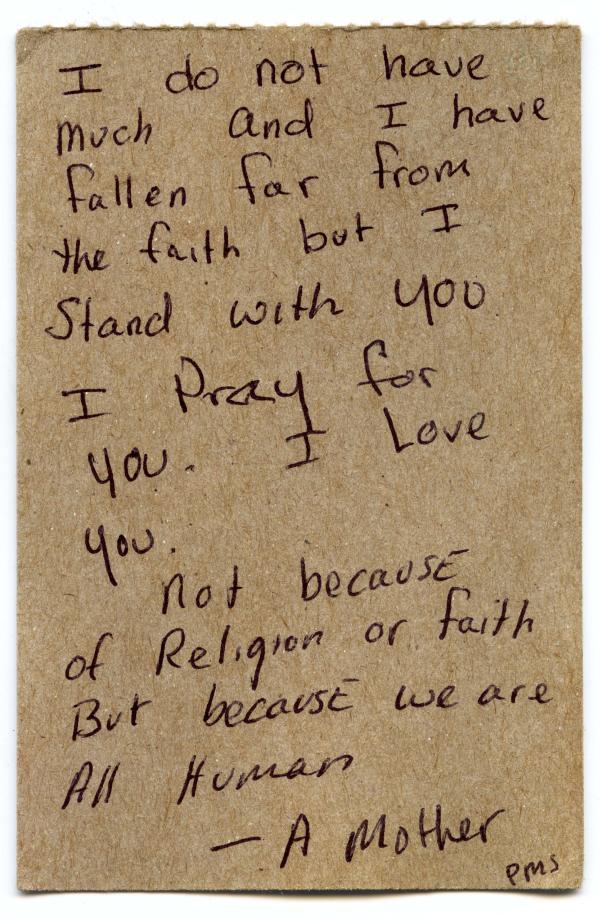 I do not have
much and I have
fallen far from
the faith but I
Stand with you
I Pray for
you. I Love
you.
not because
of Religion or faith
But because we are
All Human
— A Mother
PMS